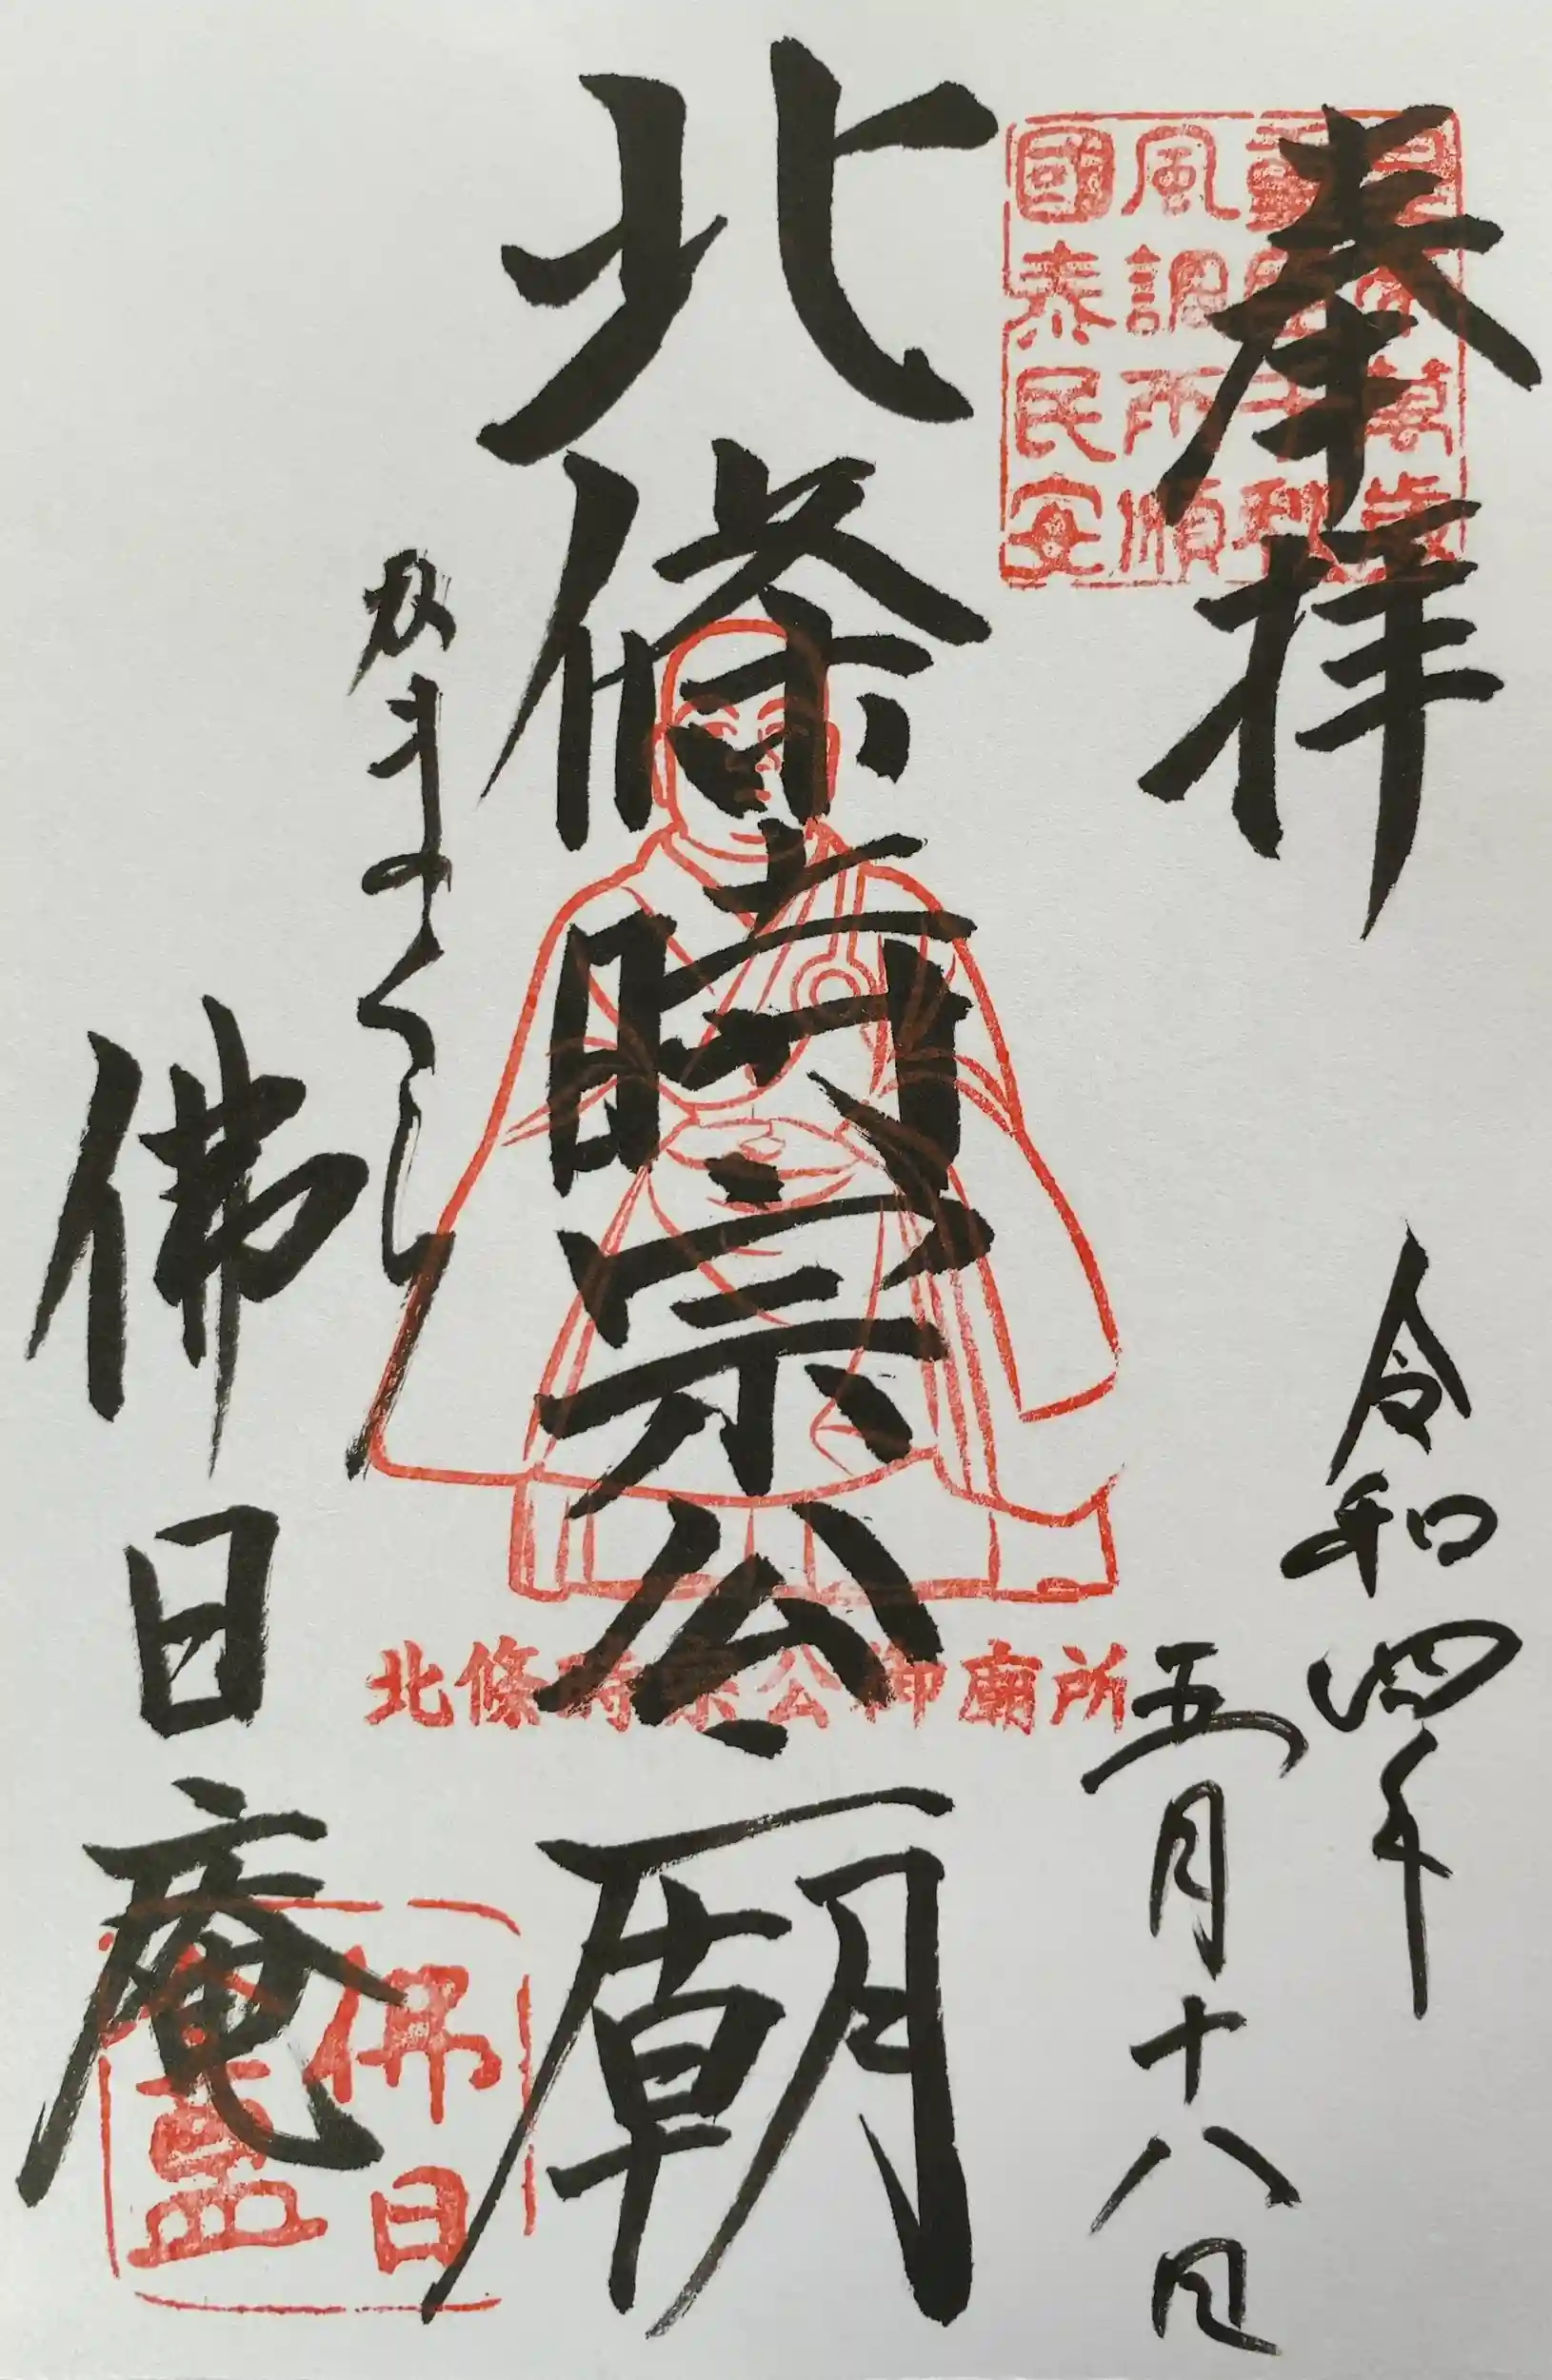 奉拝
萬歳
風調雨順
國泰民安
令和四年
五月十八日
北條時宗公廟
北條時宗公御廟所
佛日庵
佛日